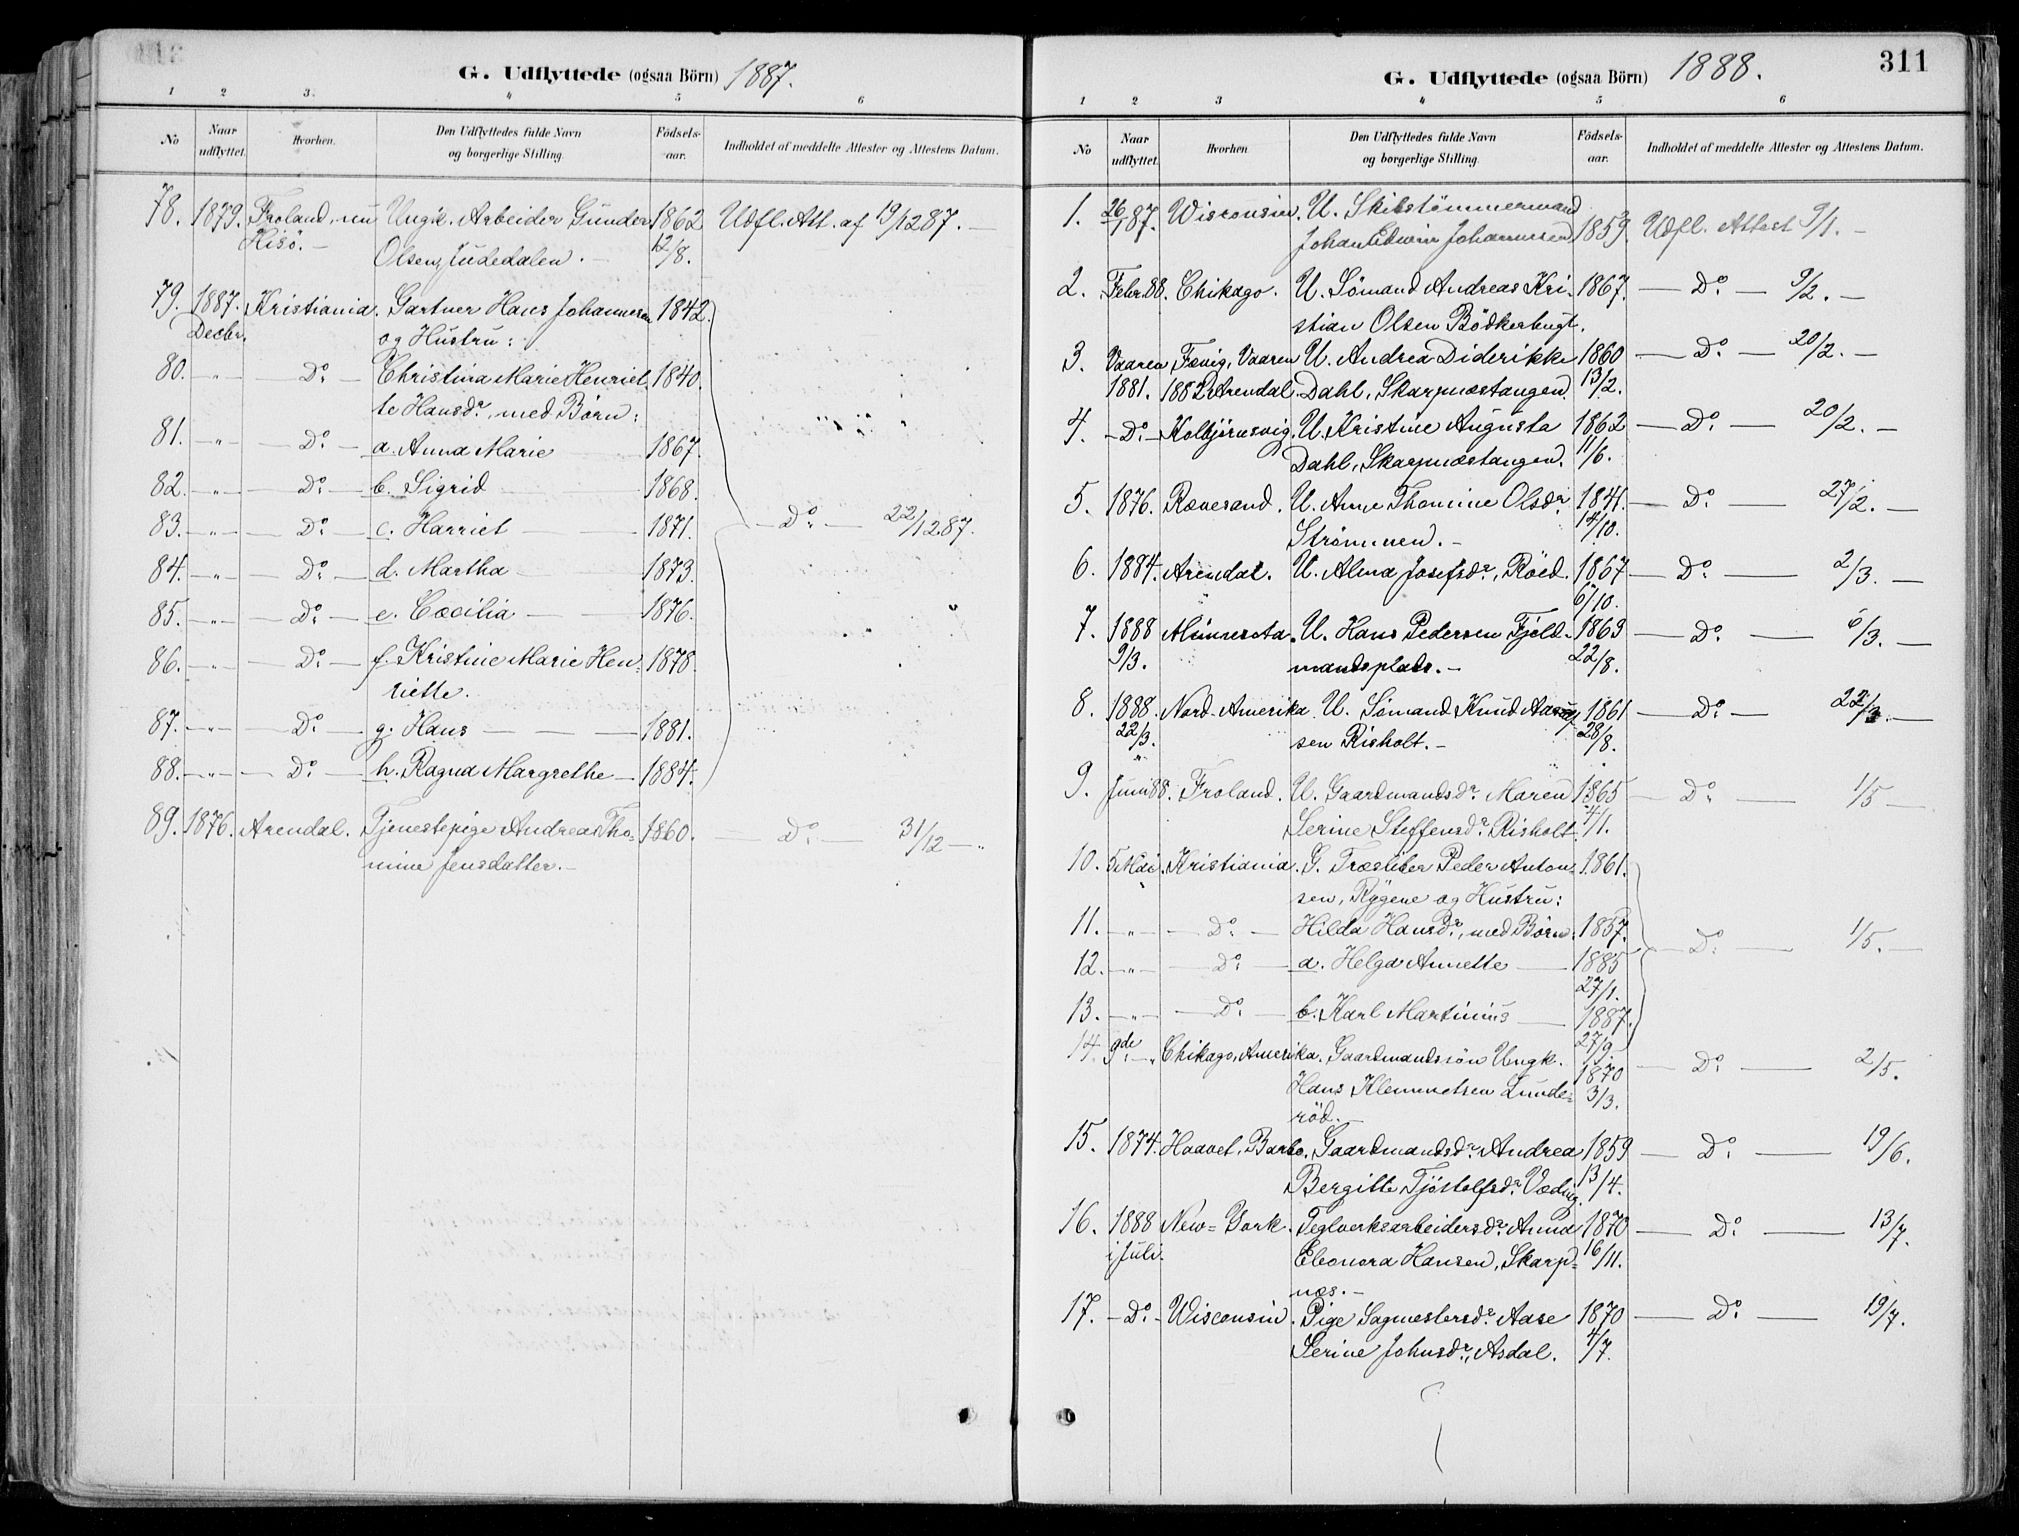 G. Udflyttede (ogsaa Börn) 1887.
1 2 3. 4 5 6
No Naar udflyttet. Hvorhen. Den Udflyttedes fulde Navn og borgerlige Stilling. Födsels-aar. Indholdet af meddelte Attester og Attestens Datum.
78. 1879. Froland, nu Ungk. Arbeider Gunder 1862 Udfl. Att. af 19/12 87. —
Hisö. — Olsen, Judedalen. — 12/8.
79. 1887. Kristiania. Gartner Hans Johannesen 1842.
Decbr. og Hustru:
80. —"— Do — Christina Marie Henriet- 1840.
te Hansdr, med Börn:
81. —"— Do — a. Anna Marie 1867.
82. —"— Do — b. Sigrid 1868.
83. —"— Do — c. Harriet — 1871. — Do — 22/12 87.
84. —"— Do — d. Martha — 1873.
85. —"— Do — e. Cæcilia — 1876.
86. —"— Do — f. Kristine Marie Hen- 1878.
riette.
87. —"— Do — g. Hans — 1881.
88. —"— Do — h. Ragna Margrethe — 1884.
89. 1876. Arendal. Tjenestepige Andrea Tho- 1860. — Do — 31/12 — "
mine Jensdatter. —
G. Udflyttede (ogsaa Börn) 1888.
311
1 2 3 4 5 6
No Naar udflyttet. Hvorhen Den Udflyttedes fulde Navn og borgerlige Stilling. Födsels-aar. Indholdet af meddelte Attester og Attestens Datum.
1. 26/1 87. Wisconsin. U. Skibstömmermand
Johan Edwin Johannessen 1859. Udfl. Attest 9/1. —
2. Febr. 88. Chikago. U. Sömand Andreas Kri- 1867. — Do — 9/2. —
stian Olsen Bödkerbugt.
3. Vaaren Fævig, Vaaren U. Andrea Diderikke 1860 — Do — 20/2. —
1881. 1882 Arendal. Dahl, Skarpnæstangen. 13/2.
4. — Do — Kolbjörnsvig. U. Kristine Augusta 1862 — Do — 20/2. —
Dahl, Skarpnæstangen. 11/6.
5. 1876. Ræversand. U. Anne Thomine Olsdr 1841. — Do — 27/2. —
Strömmen. — 14/10.
6. 1884. Arendal. U. Alma Josefsdr, Röed. 1867 — Do — 2/3. —
6/10.
7. 1888 Minnesota. U. Hans Pedersen Fjeld- 1863 — Do — 6/3. —
9/3. mandsplads. — 22/8.
8. 1888. Nord-Amerika. U. Sömand Knud Aanen- 1861 — Do — 22/3. —
22/3. sen Risholt. — 28/8.
9. Juni 88. Froland. U. Gaardmandsdr Maren 1865 — Do — 1/5 —
Serine Steffensdr Risholt. 4/1.
10. 5 Mai. Kristiania. G. Træsliber Peder Anton- 1861.
sen, Rygene og Hustru:
11. —"— Do — Hilda Hansdr, med Börn: 1857. — Do — 1/5. —
12. —"— Do — a. Helga Annette — 1885
27/1.
13. —"— Do — b. Karl Martinius — 1887.
27/9.
14. 9de —"— Chikago, Amerika. Gaardmandssön Ungk. 1870 — Do — 2/5.
Hans Klemmetsen Lunde- 3/3.
röd. —
15. 1874. Haavet, Barbo. Gaardmandsdr Andrea 1859 — Do — 19/6.
Bergitte Tjöstolfsdr Vædvig. 13/4.
16. 1888 New-York. Teglverksarbeidersdr Anna 1870 — Do — 13/7.
i Juli. Eleonora Hansen, Skarp- 16/11.
næs. —
17. — Do — Wisconsin. Pige Sagmestersdr Aase 1870 — Do — 19/7.
Serine Johnsdr, Asdal. 4/7.